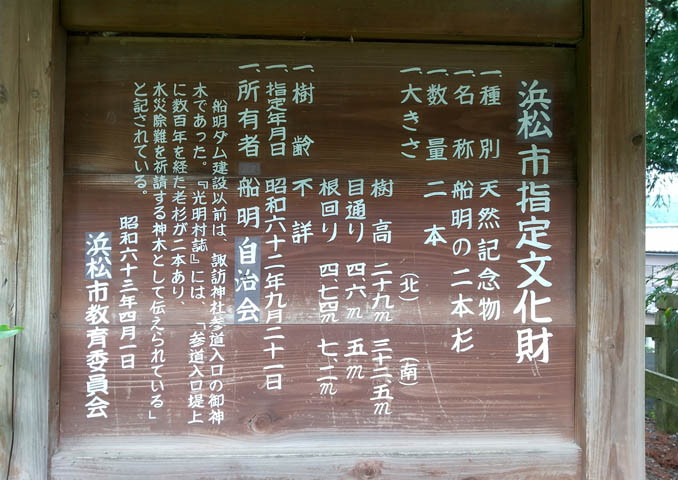 浜松市指定文化財
一、種別 天然記念物
一、名称 船明の二本杉
一、数量 二本
一、大きさ (北) (南)
樹高 二十九m 三十二、五m
目通り 四、六m 五m
根回り 四、七四m 七、二m
一、樹齢 不詳
一、指定年月日 昭和六十二年九月二十一日
一、所有者 船明自治会
船明ダム建設以前は、諏訪神社参道入口の御神
木であった。『光明村誌』には、「参道入口堤上
に数百年を経た老杉が二本あり
水災除難を祈請する神木として伝えられている」
と記されている。
昭和六十三年四月一日
浜松市教育委員会